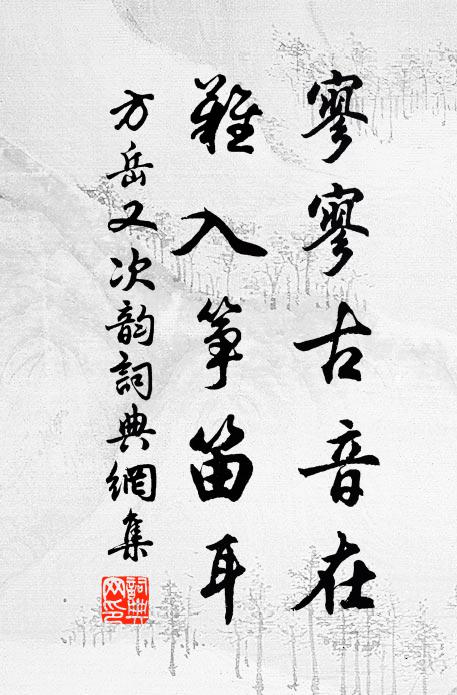 寥寥古音在
難入箏笛耳
方岳又次韵詞典網集
詞典網印